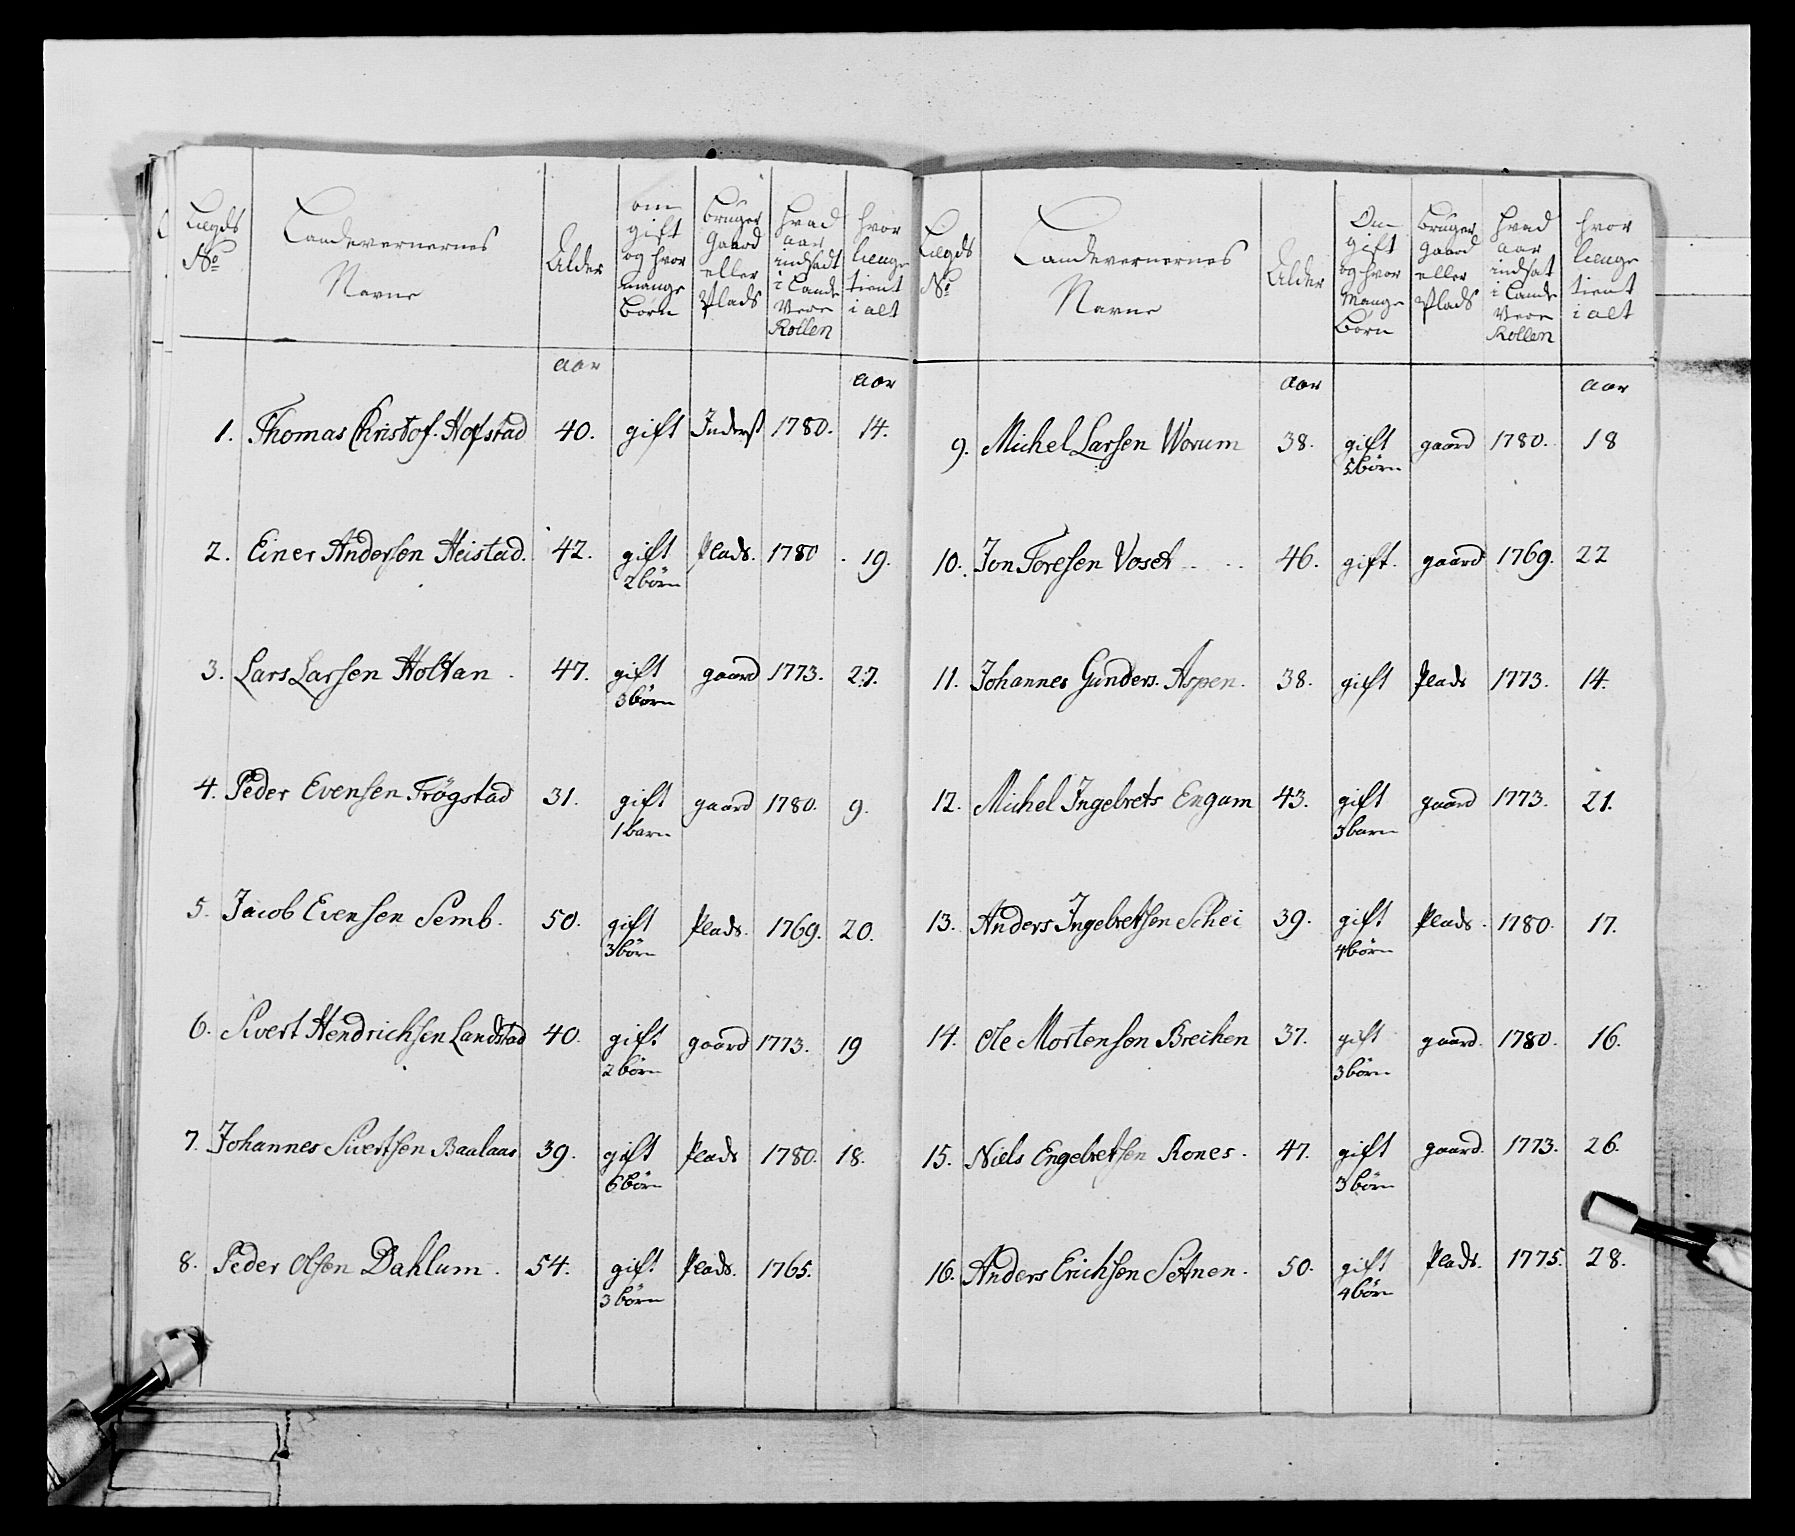 Lægds No
Landevernernes Navne
Alder
om gift og hvor mange Börn
Bruger Gaard eller Plads
Hvad aar indsadt i Lande Vern Rollen
hvor længe tient i alt
aar
aar
1. Thomas Christof. Hofstad 40. gift Inderst 1780. 14.
2. Einer Andersen Heistad. 42. gift Plads. 1780. 19.
2 börn
3. Lars Larsen Holtan. 47. gift gaard 1773. 27.
3 börn
4. Peder Evensen Frögstad 31. gift gaard 1780. 9.
1 barn
5. Jacob Evensen Semb. 50. gift Plads. 1769. 20.
3 börn
6. Sivert Hendrichsen Landstad 40. gift gaard 1773. 19
2 börn
7. Johannes Sivertsen Baalaas 39. gift Plads 1780. 18.
6 börn
8. Peder Olsen Dahlum. 54. gift Plads. 1765.
3 börn
Lægds No
Landevernernes Navne
Alder
Om gift og hvor Mange Börn
Bruger Gaard eller Plads
Hvad aar indsat i Lande Vern Rollen
hvor længe tient i alt
aar
aar
9. Michel Larsen Worum 38. gift gaard 1780. 18
5 börn
10. Jon Toresen Voset 46. gift. gaard 1769. 22
11. Johannes Gunders. Aspen. 38. gift Plads 1773. 14.
12. Michel Ingebrets Engum 43. gift gaard 1773. 21.
3 barn
13. Anders Ingebretsen Schei 39. gift Plads. 1780. 17.
4 börn
14. Ole Mortensen Breihen 37. gift gaard. 1780. 16.
3 börn
15. Niels Engebretsen Rones. 47. gift gaard. 1773. 26.
3 börn
16. Anders Erichsen Setnen. 50. gift Plads. 1775. 28.
4 börn